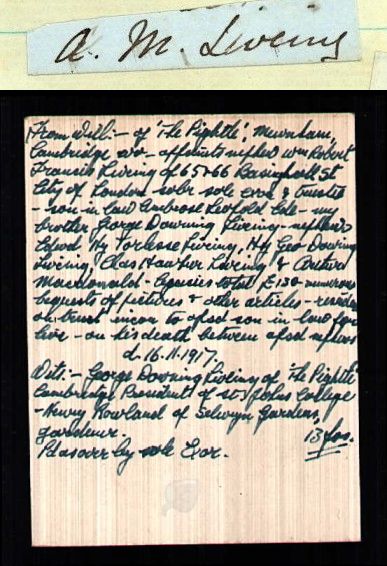 A. M. Liveing
From Will:- of 'The Pightle', Newnham,
Cambridge wo- appoints nephew Wm Robert
Francis Liveing of 65 & 66 Basinghall St
City of London solr sole exor & trustee
- son in law Ambrose - my
brother George Downing Liveing - nephews
Edwd Hy Torlesse Liveing, Hy Geo Downing
Liveing, Chas Hawker Liveing &
Macdonald - legacies total £130 - numerous
bequests of pictures & other articles - residue
on trust income to afsd son-in-law for
live - on his death between afsd nephews
d. 16.11.1917.
Wits:- George Downing Liveing of 'The Pightle'
Cambridge President of St Johns College
- Henry Rowland of Selwyn Gardens,
gardener.
13 fos.
by sole Exor.